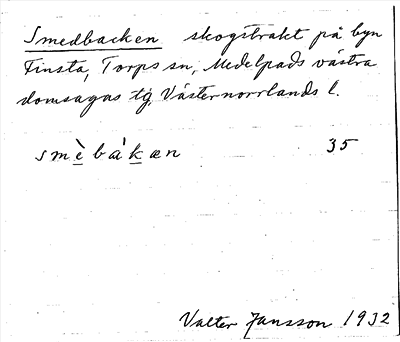 Smedbacken skogstrakt på byn
Finsta, Torps sn, Medelpads västra
domsagas tg, Västernorrlands l.
smè̱bàḵæn 35
Valter Jansson 1932